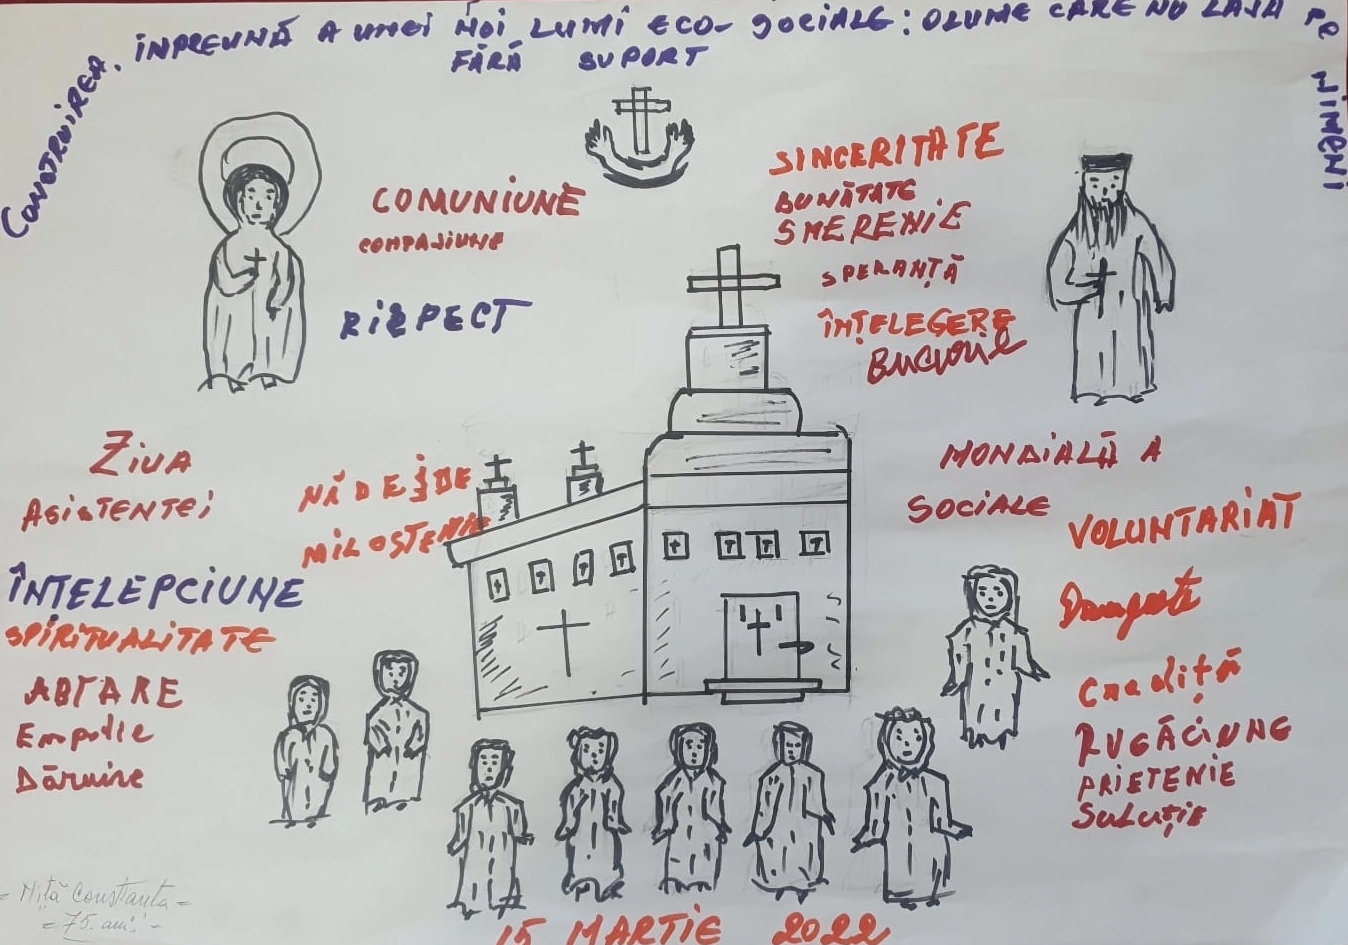 Construirea, ÎNPREUNĂ A UNEI NOI LUMI ECO-SOCIALE: O LUME CARE NU LASĂ PE NIMENI
FĂRĂ SUPORT
COMUNIUNE
COMPASIUNE
RISPECT
SINCERITATE
BUNĂTATE
SMERENIE
SPERANȚĂ
ÎNȚELEGERE
Bucurie
Ziua
MONDIALĂ A
ASISTENTEI
SOCIALE
NĂDEJDE
MILOSTENIE
VOLUNTARIAT
ÎNȚELEPCIUNE
SPIRITUALITATE
Dragoste
AștARE
Empatie
Dăruire
Credință
RUGĂCIUNE
PRIETENIE
Soluție
= Niță Constanta =
= 75. ani! =
15 MARTIE 2022